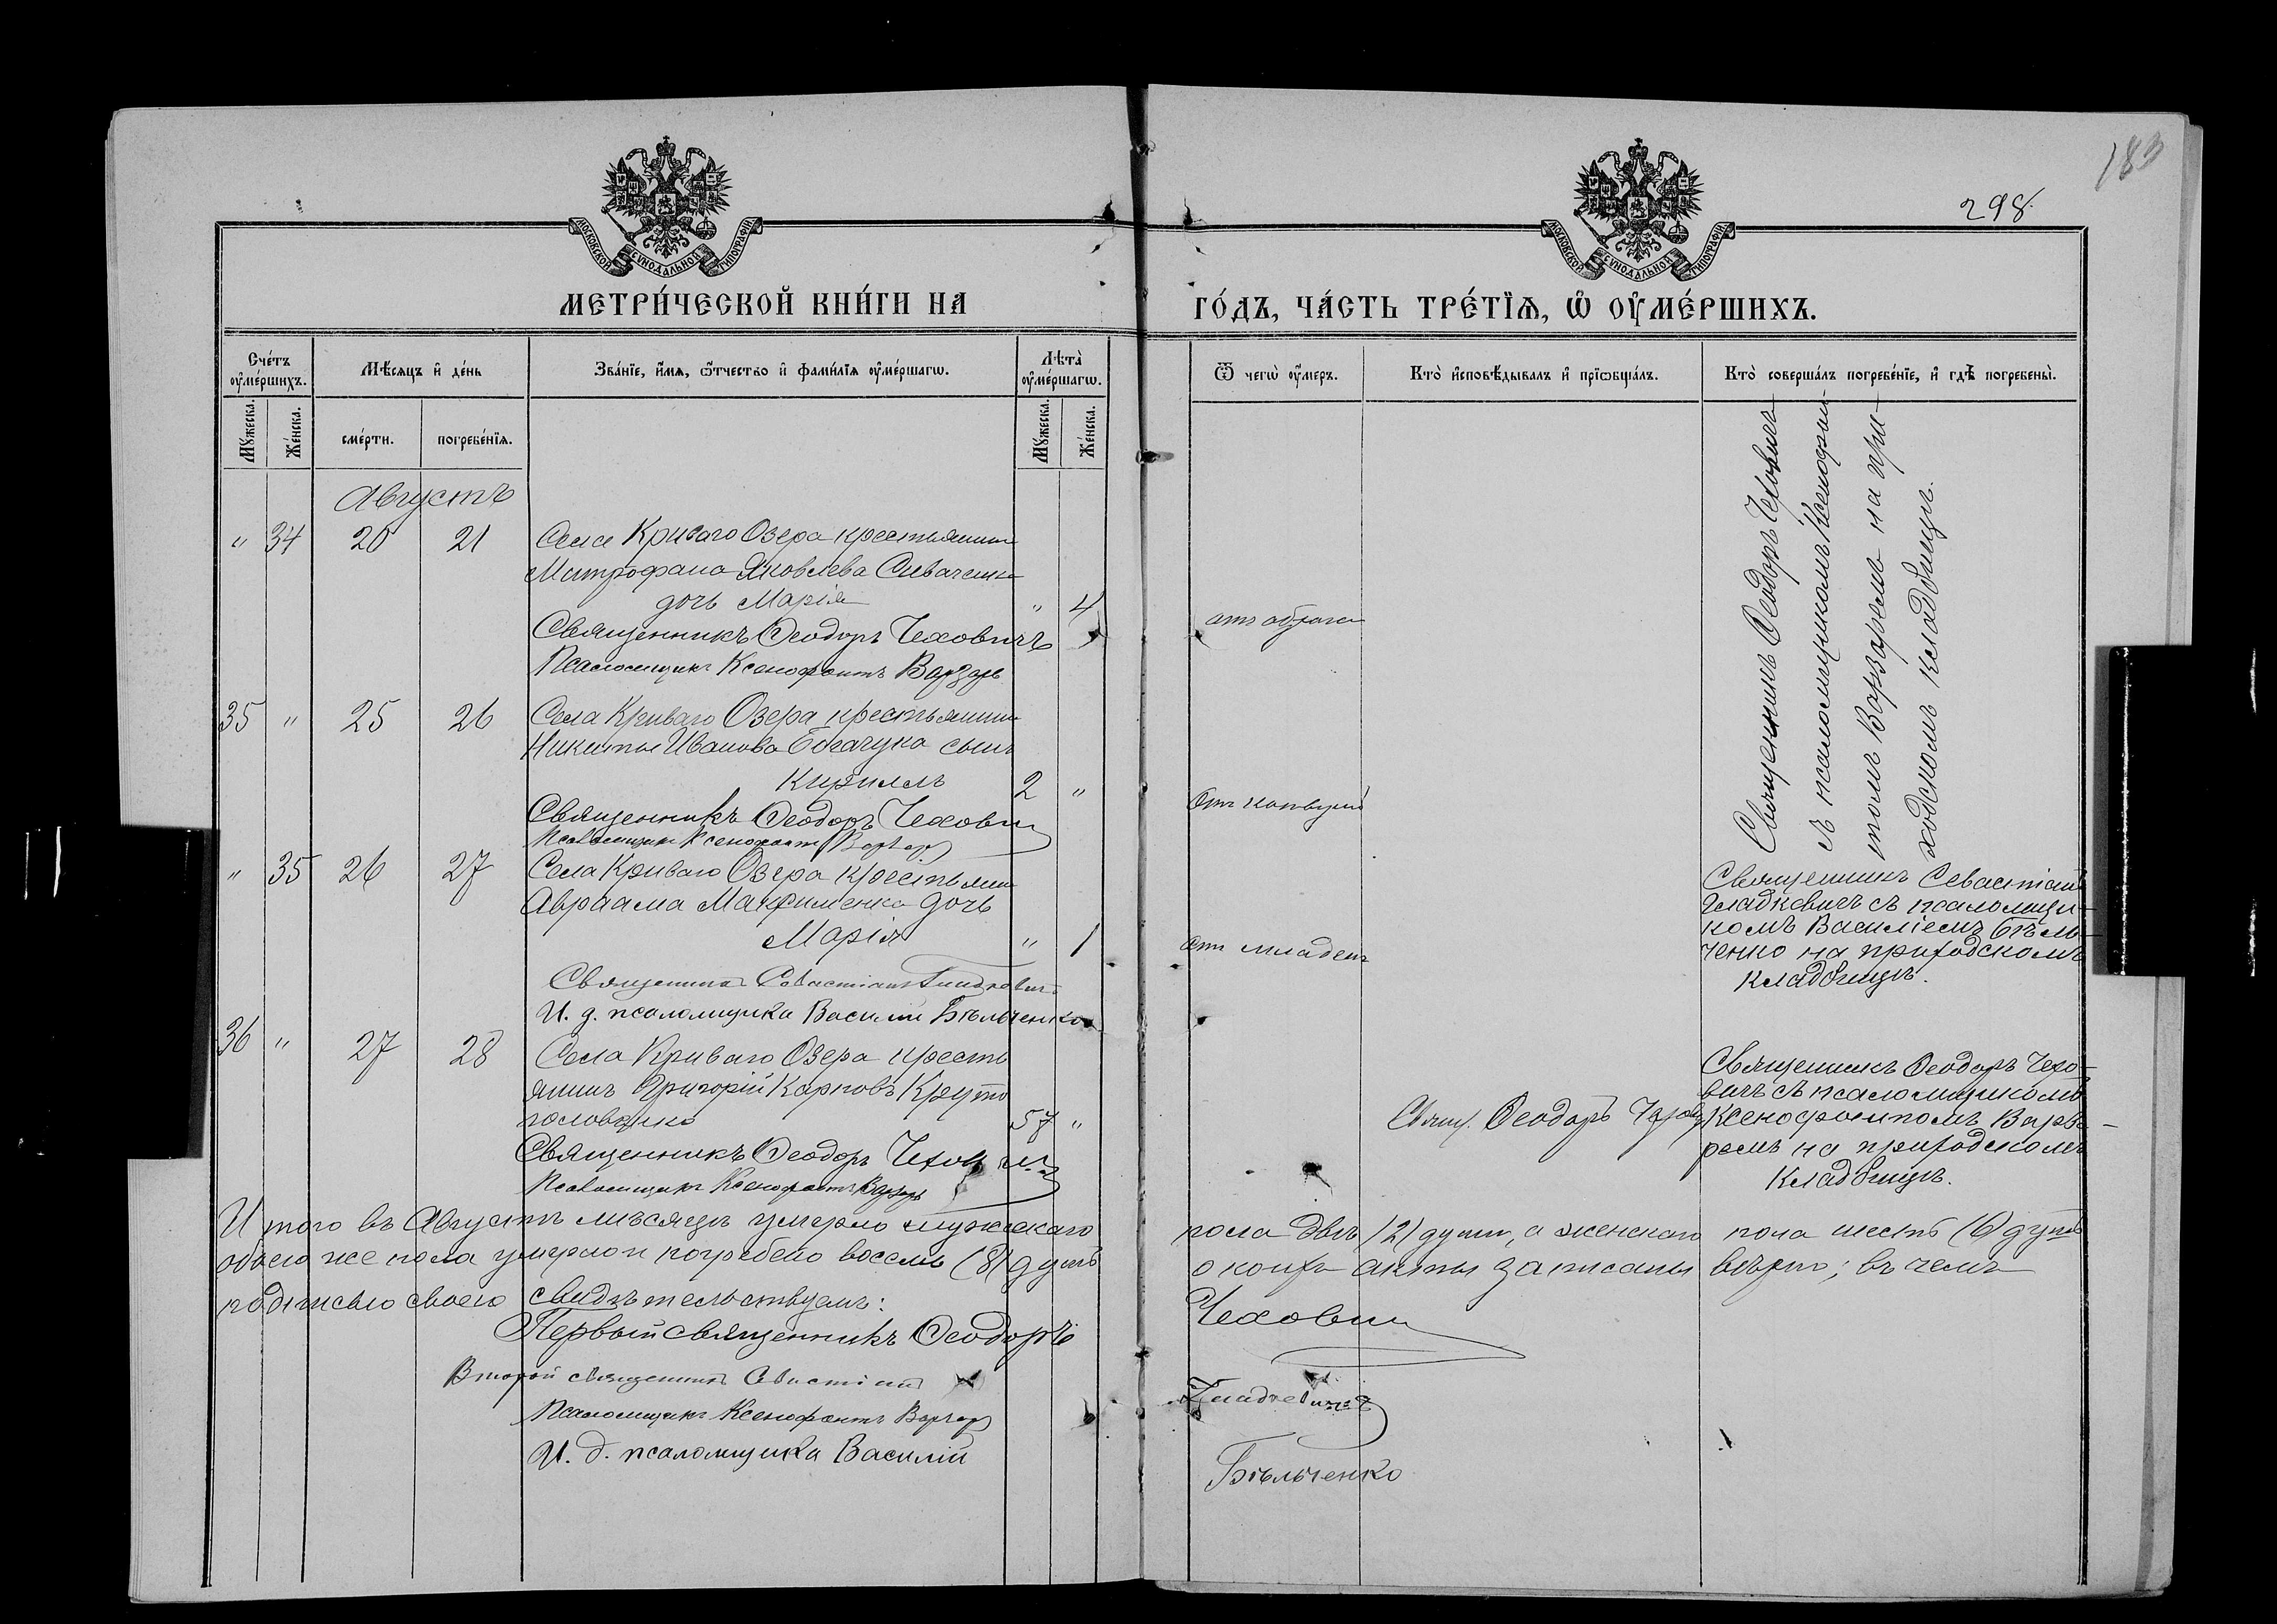 183
298.
МОСКОВСКОЙ СѴНОДАЛЬНОЙ ТИПОГРАФІИ
МОСКОВСКОЙ СѴНОДАЛЬНОЙ ТИПОГРАФІИ
МЕТРИ́ЧЕСКОЙ КНИ́ГИ НА
ГО́ДЪ, ЧА́СТЬ ТРЕ́ТЇѦ, Ѡ҆ ОУ҆МЕ́РШИХЪ.
Сче́тъ оу҆ме́ршихъ.
Мѣ́сяцъ и҆ де́нь
Зва́нїе, и҆́мѧ, ѻ҆́тчество и҆ фами́лїѧ оу҆ме́ршагѡ.
Лѣта̀ оу҆ме́ршагѡ.
Ѿ чегѡ̀ оу҆́меръ.
Кто̀ и҆сповѣ́дывалъ и҆ прїѡбща́лъ.
Кто̀ соверша́лъ погребе́нїе, и҆ гдѣ̀ погребены̀.
Мꙋ́жеска.
Же́нска.
сме́рти.
погребе́нїѧ.
Мꙋ́жеска.
Же́нска.
Августъ
" 34 20 21 Села Криваго Озера крестьянина
Митрофана Яковлева Сиваченка
дочь Марія " 4
Священникъ Ѳеодоръ Чеховичъ
Псаломщикъ Ксенофонтъ Варзарь
Священникъ Ѳеодоръ Чеховичъ
съ псаломщикомъ Ксенофон-
томъ Варзаремъ на при-
ходскомъ кладбищѣ.
35 " 25 26 Села Криваго Озера крестьянина
Никиты Иванова сынъ
Кириллъ 2 "
Священникъ Ѳеодоръ Чеховичъ
Псаломщикъ Ксенофонтъ Варзарь
" 35 26 27 Села Криваго Озера крестьянина
Авраама Максименка дочь
Марія " 1
от младен
Священникъ Севастіанъ Гладкевичъ
И. д. псаломщика Василій Бѣльченко
Священникъ Севастіанъ
Гладкевичъ съ псаломщи-
комъ Василіемъ Бѣль-
ченко на приходскомъ
кладбищѣ.
36 " 27 28 Села Криваго Озера кресть
янинъ Григорій Карповъ Круто
головенко 57 "
Свящ. Ѳеодоръ
Священникъ Ѳеодоръ Чеховичъ
Псаломщикъ Ксенофонтъ Варзарь
Священникъ Ѳеодоръ Чехо-
вичъ съ псаломщикомъ
Ксенофонтомъ Варза-
ремъ на приходскомъ
кладбищѣ.
Итого въ Августѣ мѣсяцѣ умерло мужескаго пола двѣ (2) души, а женскаго пола шесть (6) душъ
обоего же пола умерло и погребено восемь (8) душъ о коихъ акты записаны вѣрно; въ чемъ
подписью своею свидѣтельствуемъ:
Первый священникъ Ѳеодоръ Чеховичъ
Второй священникъ Севастіанъ Гладкевичъ
Псаломщикъ Ксенофонтъ Варзарь
И. д. псаломщика Василій Бѣльченко